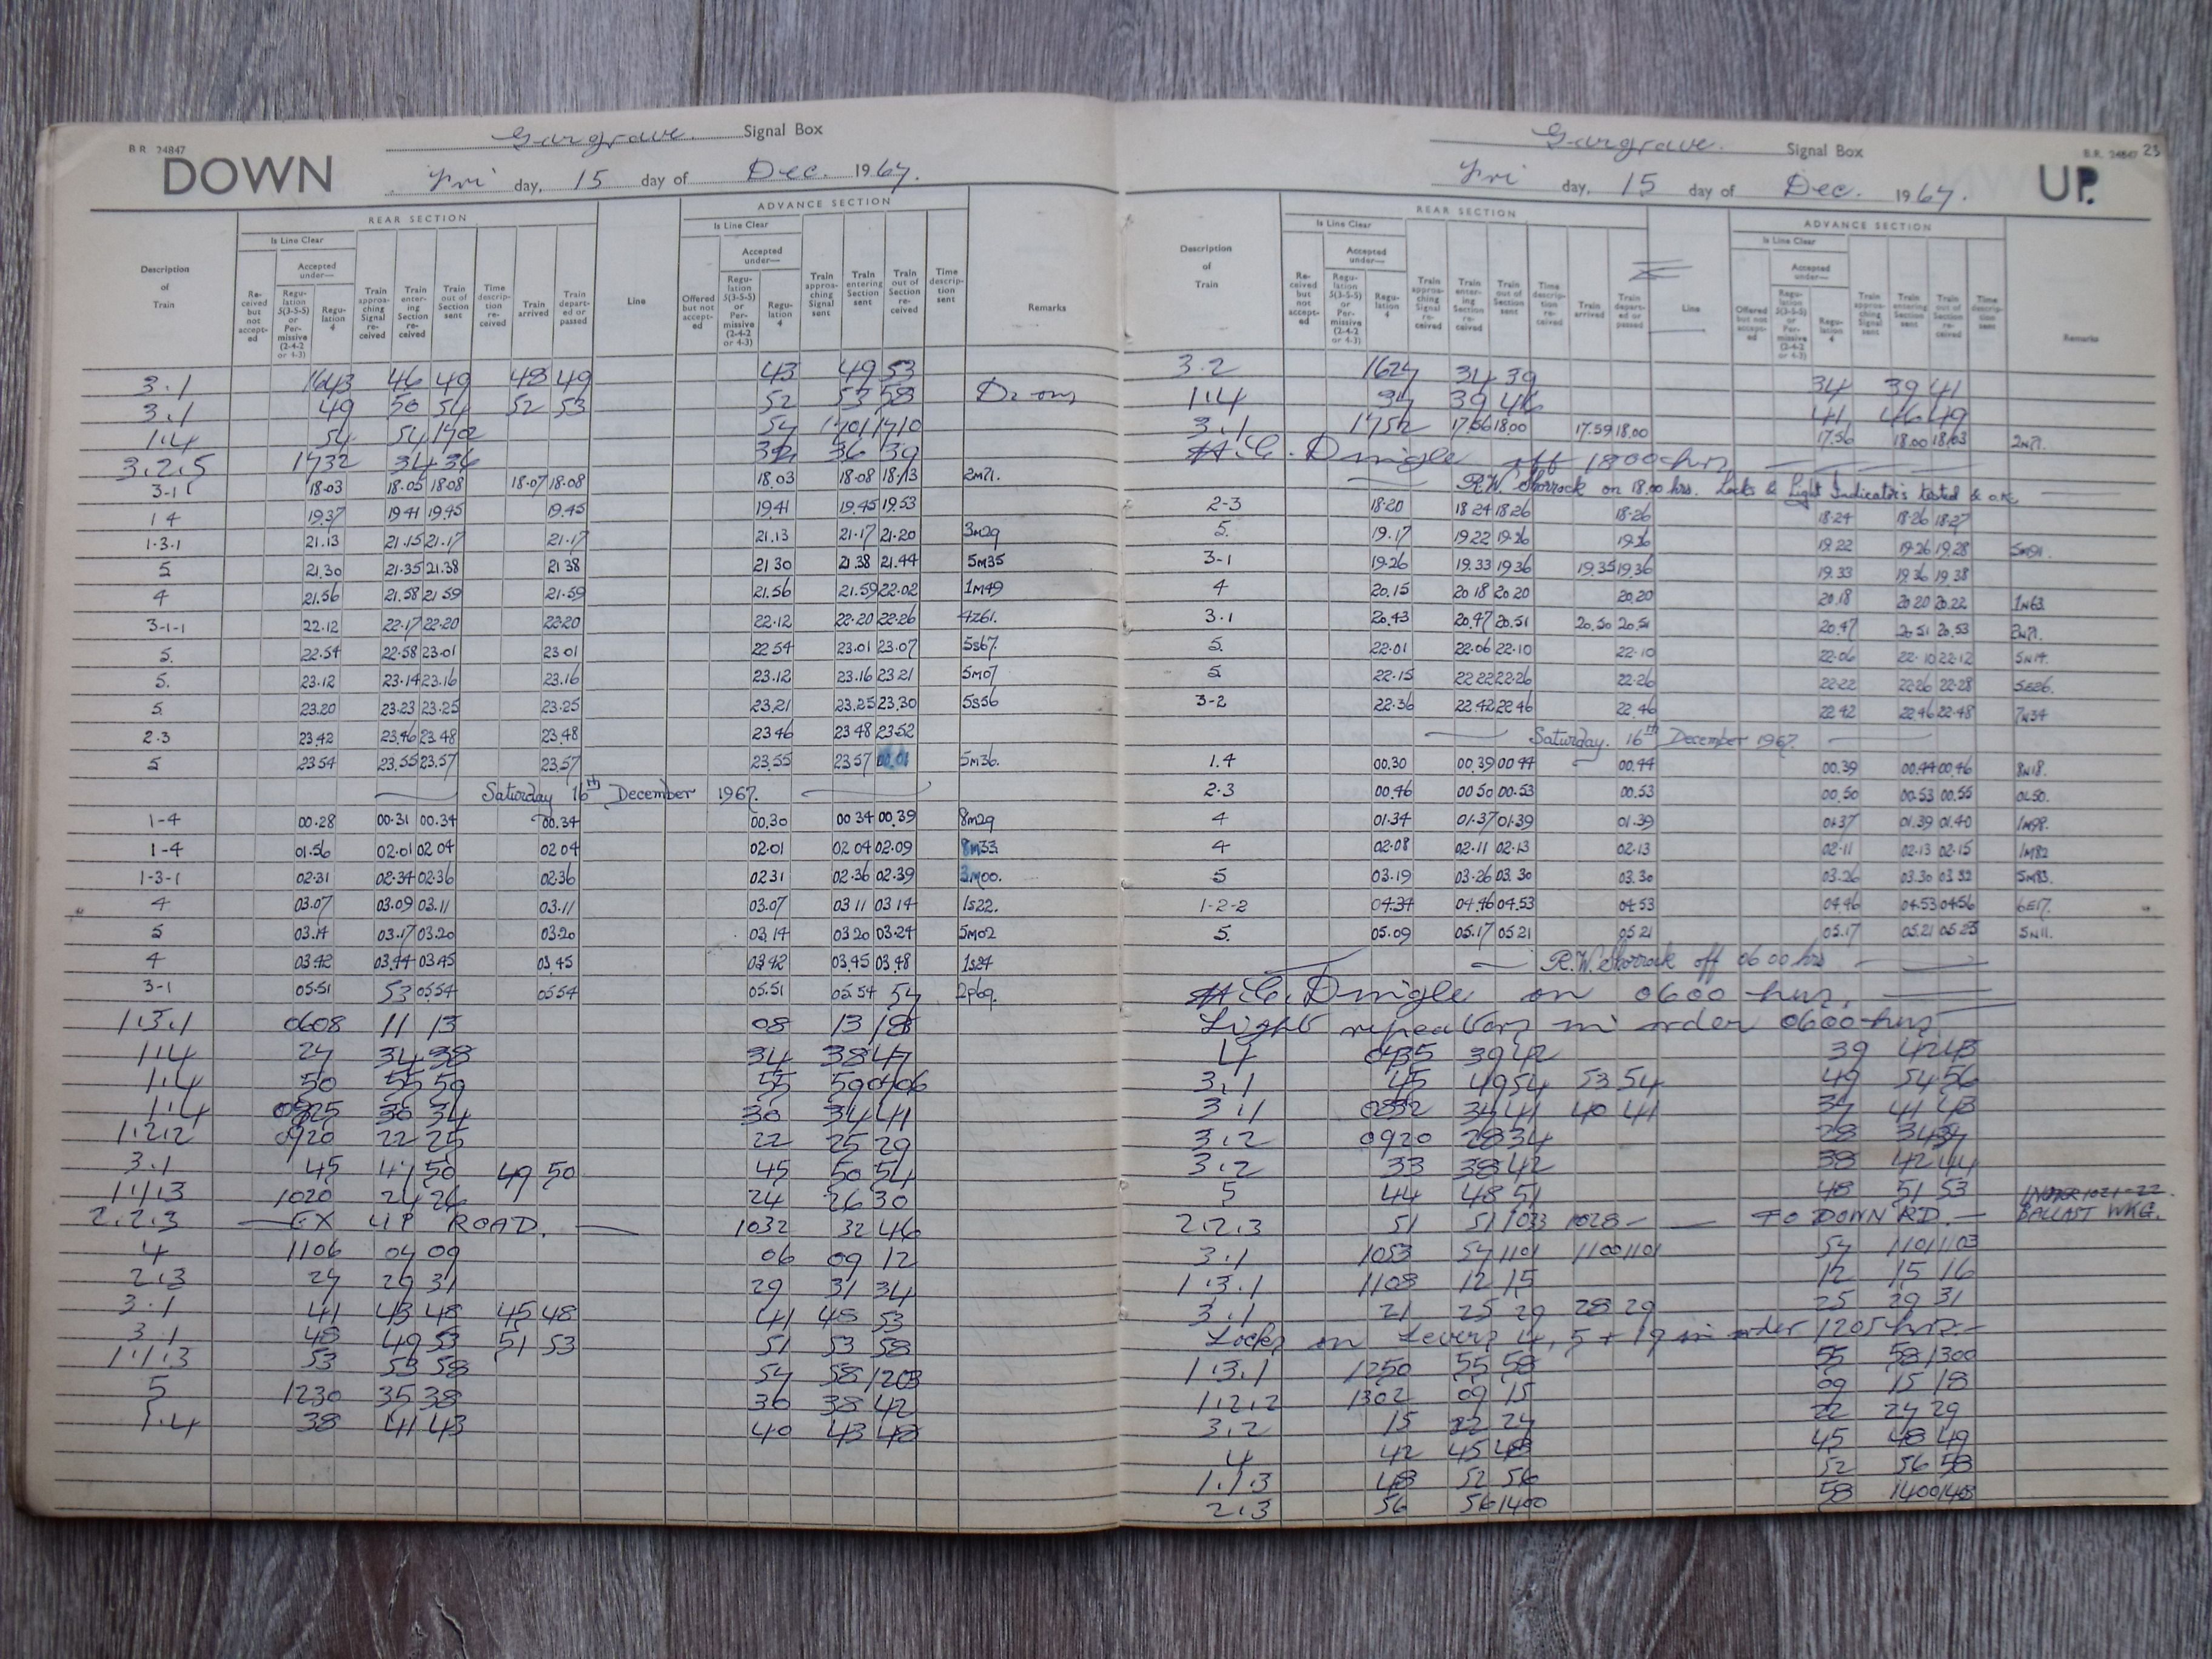 B.R. 24847
DOWN
Gargrave. Signal Box
Fri day, 15 day of Dec. 1967.
REAR SECTION
ADVANCE SECTION
Is Line Clear
Is Line Clear
Description of Train
Re-ceived but not accept-ed
Accepted under—
Regu-lation 5(3-5-5) or Per-missive (2-4-2 or 4-3)
Regu-lation 4
Train approa-ching Signal re-ceived
Train enter-ing Section re-ceived
Train out of Section sent
Time descrip-tion re-ceived
Train arrived
Train depart-ed or passed
Line
Offered but not accept-ed
Accepted under—
Regu-lation 5(3-5-5) or Per-missive (2-4-2 or 4-3)
Regu-lation 4
Train approa-ching Signal sent
Train entering Section sent
Train out of Section re-ceived
Time descrip-tion sent
Remarks
3.1 1643 46 49 48 49 43 49 53
3.1 49 50 54 52 53 52 53 58
1.4 54 57 1702 57 1701 1710
3.2.5 1732 34 36 36 39
3-1 18.03 18.05 18.08 18.07 18.08 18.03 18.08 18.13 2M71.
1 4 19.37 19 41 19.45 19.45 19.41 19.45 19.53
1-3-1 21.13 21.15 21.17 21.17 21.13 21.17 21.20 3M29
5 21.30 21.35 21.38 21 38 21 30 21 38 21.44 5M35
4 21.56 21.58 21 59 21.59 21.56 21.59 22.02 1M49
3-1-1 22.12 22.17 22.20 22.20 22.12 22.20 22.26 4Z61.
5. 22.54 22.58 23.01 23 01 22 54 23.01 23.07 5S67.
5. 23.12 23.14 23.16 23.16 23.12 23.16 23 21 5M07
5. 23.20 23.23 23.25 23.25 23.21 23.25 23.30 5S56
2.3 23.42 23.46 23.48 23.48 23 46 23 48 23.52
5 23 54 23.55 23.57 23.57 23.55 23 57 00.01 5M36.
Saturday 16th December 1967.
1-4 00.28 00.31 00.34 00.34 00.30 00 34 00.39 8M29
1-4 01.56 02.01 02 04 02 04 02.01 02 04 02.09 8M33.
1-3-1 02.31 02.34 02.36 02.36 02 31 02.36 02.39 3M00.
4 03.07 03.09 03.11 03.11 03.07 03 11 03 14 1S22.
5 03.14 03.17 03.20 03.20 03.14 03 20 03.24 5M02
4 03.42 03.44 03.45 03.45 03.42 03.45 03.48 1S24
3-1 05.51 53 05.54 05 54 05.51 05.54 57 2P69.
1.3.1 0608 11 13 08 13 18
1.4 27 34 38 34 38 47
1.4 50 55 59 55 59 0706
1.4 0825 30 34 30 34 41
1.2.2 0920 22 25 22 25 29
3.1 45 47 50 49 50 45 50 54
1.1.3 1020 24 26 24 26 30
2.2.3 EX UP ROAD. 1032 32 46
4 1106 07 09 06 09 12
2.3 27 29 31 29 31 34
3.1 41 43 48 45 48 41 48 53
3.1 48 49 53 51 53 51 53 58
1.1.3 53 53 58 57 58 1203
5 1230 35 38 36 38 42
1.4 38 41 43 40 43 48
B.R. 24847 23
UP.
Gargrave. Signal Box
Fri day, 15 day of Dec. 1967.
REAR SECTION
ADVANCE SECTION
Is Line Clear
Is Line Clear
Description of Train
Re-ceived but not accept-ed
Accepted under—
Regu-lation 5(3-5-5) or Per-missive (2-4-2 or 4-3)
Regu-lation 4
Train approa-ching Signal re-ceived
Train enter-ing Section re-ceived
Train out of Section sent
Time descrip-tion re-ceived
Train arrived
Train depart-ed or passed
Line
Offered but not accept-ed
Accepted under—
Regu-lation 5(3-5-5) or Per-missive (2-4-2 or 4-3)
Regu-lation 4
Train approa-ching Signal sent
Train entering Section sent
Train out of Section re-ceived
Time descrip-tion sent
Remarks
3.2 1627 34 39 34 39 41
1.4 37 39 46 41 46 49
3.1 1752 17.56 18.00 17.59 18.00 17.56 18.00 18.03 2N71.
H.C. Dringle off 1800 hrs.
R.W. Shorrock on 18.00 hrs. Locks & Light Indicators tested & o.k.
2-3 18.20 18 24 18 26 18.26 18.24 18.26 18.27
5. 19.17 19 22 19.26 19.26 19.22 19.26 19.28
3-1 19.26 19.33 19 36 19.35 19.36 19.33 19 36 19 38
4 20.15 20 18 20 20 20.20 20.18 20 20 20.22 1N63.
3.1 20.43 20.47 20.51 20.50 20.51 20.47 20 51 20.53 2N71.
5. 22.01 22.06 22.10 22.10 22.06 22.10 22.12 5N14.
5 22.15 22 22 22.26 22.26 22.22 22.26 22.28 5E26.
3-2 22.36 22.42 22 46 22.46 22 42 22 46 22.48 7N34
Saturday. 16th December 1967.
1.4 00.30 00.39 00 44 00.44 00.39 00.44 00.46 8N18.
2.3 00.46 00 50 00.53 00.53 00.50 00.53 00.55 0L50.
4 01.34 01.37 01.39 01.39 01.37 01.39 01.40 1M98.
4 02.08 02.11 02.13 02.13 02.11 02.13 02.15 1M82
5 03.19 03.26 03.30 03.30 03.26 03.30 03 32 5M83.
1-2-2 04.34 04.46 04.53 04 53 04.46 04.53 04 56 6E17.
5. 05.09 05.17 05 21 05 21 05.17 05.21 05 23 5N11.
R.W. Shorrock off 06 00 hrs
H.C. Dringle on 0600 hrs.
Light repeaters in order 0600 hrs.
4 0735 39 42 39 42 43
3.1 45 49 54 53 54 49 54 56
3.1 0832 37 41 40 41 37 41 43
3.2 0920 28 34 28 34 37
3.2 33 38 42 38 42 44
5 44 48 51 48 51 53
2.2.3 51 51 1033 1028 TO DOWN RD. BALLAST WKG.
3.1 1053 57 1101 1100 1101 57 1101 1103
1.3.1 1108 12 15 12 15 16
3.1 21 25 29 28 29 25 29 31
Locks on Levers 4, 5 + 19 in order 1205 hrs.
1.3.1 1250 55 58 55 58 1300
1.2.2 1302 09 15 09 15 18
3.2 15 22 27 22 27 29
4 42 45 48 45 48 49
1.1.3 48 52 56 52 56 58
2.3 56 56 1400 58 1400 1408